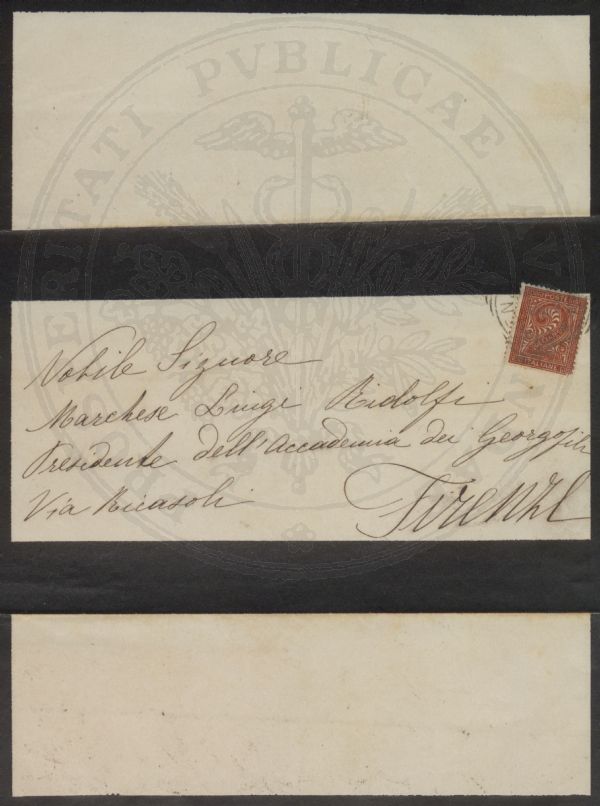 PROSPERITATI PVBLICAE AVGENDAE
Nobile Signore
Marchese Luigi Ridolfi
Presidente dell'Accademia dei Georgofili
Via Ricasoli
Firenze
POSTE
ITALIANE